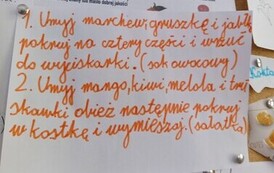 1. Umyj marchew, gruszkę i jabłk
pokruj na cztery części i wrzuć
do wyciskarki. (sok owocowy)
2. Umyj mango, kiwi, melola i tru
skawki obież następnie pokruj
w kostkę i wymieszaj. (sałatka)